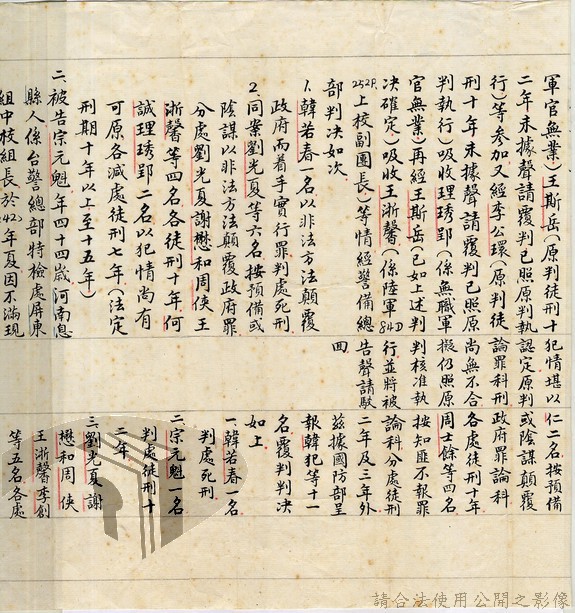 軍官無業）王斯岳（原判徒刑十
二年未據聲請覆判已照原判執
行）等參加又經李公環（原判徒
刑十年未據聲請覆判已照原
判執行）吸收理琇郢（係無職軍
官無業）再經王斯岳（已如上述判
決確定）吸收王浙馨（係陸軍84D
252R上校副團長）等情經警備總
部判決如次
1.韓若春一名以非法方法顛覆
政府而着手實行罪判處死刑
2.同案劉光夏等六名按預備或
陰謀以非法方法顛覆政府罪
分處劉光夏謝懋和周俠王
浙馨等四名各徒刑十年何
誠理琇郢二名以犯情尚有
可原各減處徒刑七年（法定
刑期十年以上至十五年）
二、被告宗元魁年四十四歲河南息
縣人係台警總部特檢處屏東
組中校組長於42年夏因不滿現
犯情堪以
認定原判
論罪科刑
尚無不合
擬仍照原
判核准執
行並將被
告聲請駁
回
仁二名按預備
或陰謀顛覆
政府罪論科
各處徒刑十年
周士餘等四名
按知匪不報罪
論科分處徒刑
二年及三年外
茲據國防部呈
報韓犯等十一
名覆判判決
如上
一韓若春一名
判處死刑
二宗元魁一名
判處徒刑十
二年
三劉光夏謝
懋和周俠
王浙馨李創
等五名各處
請合法使用公開之影像